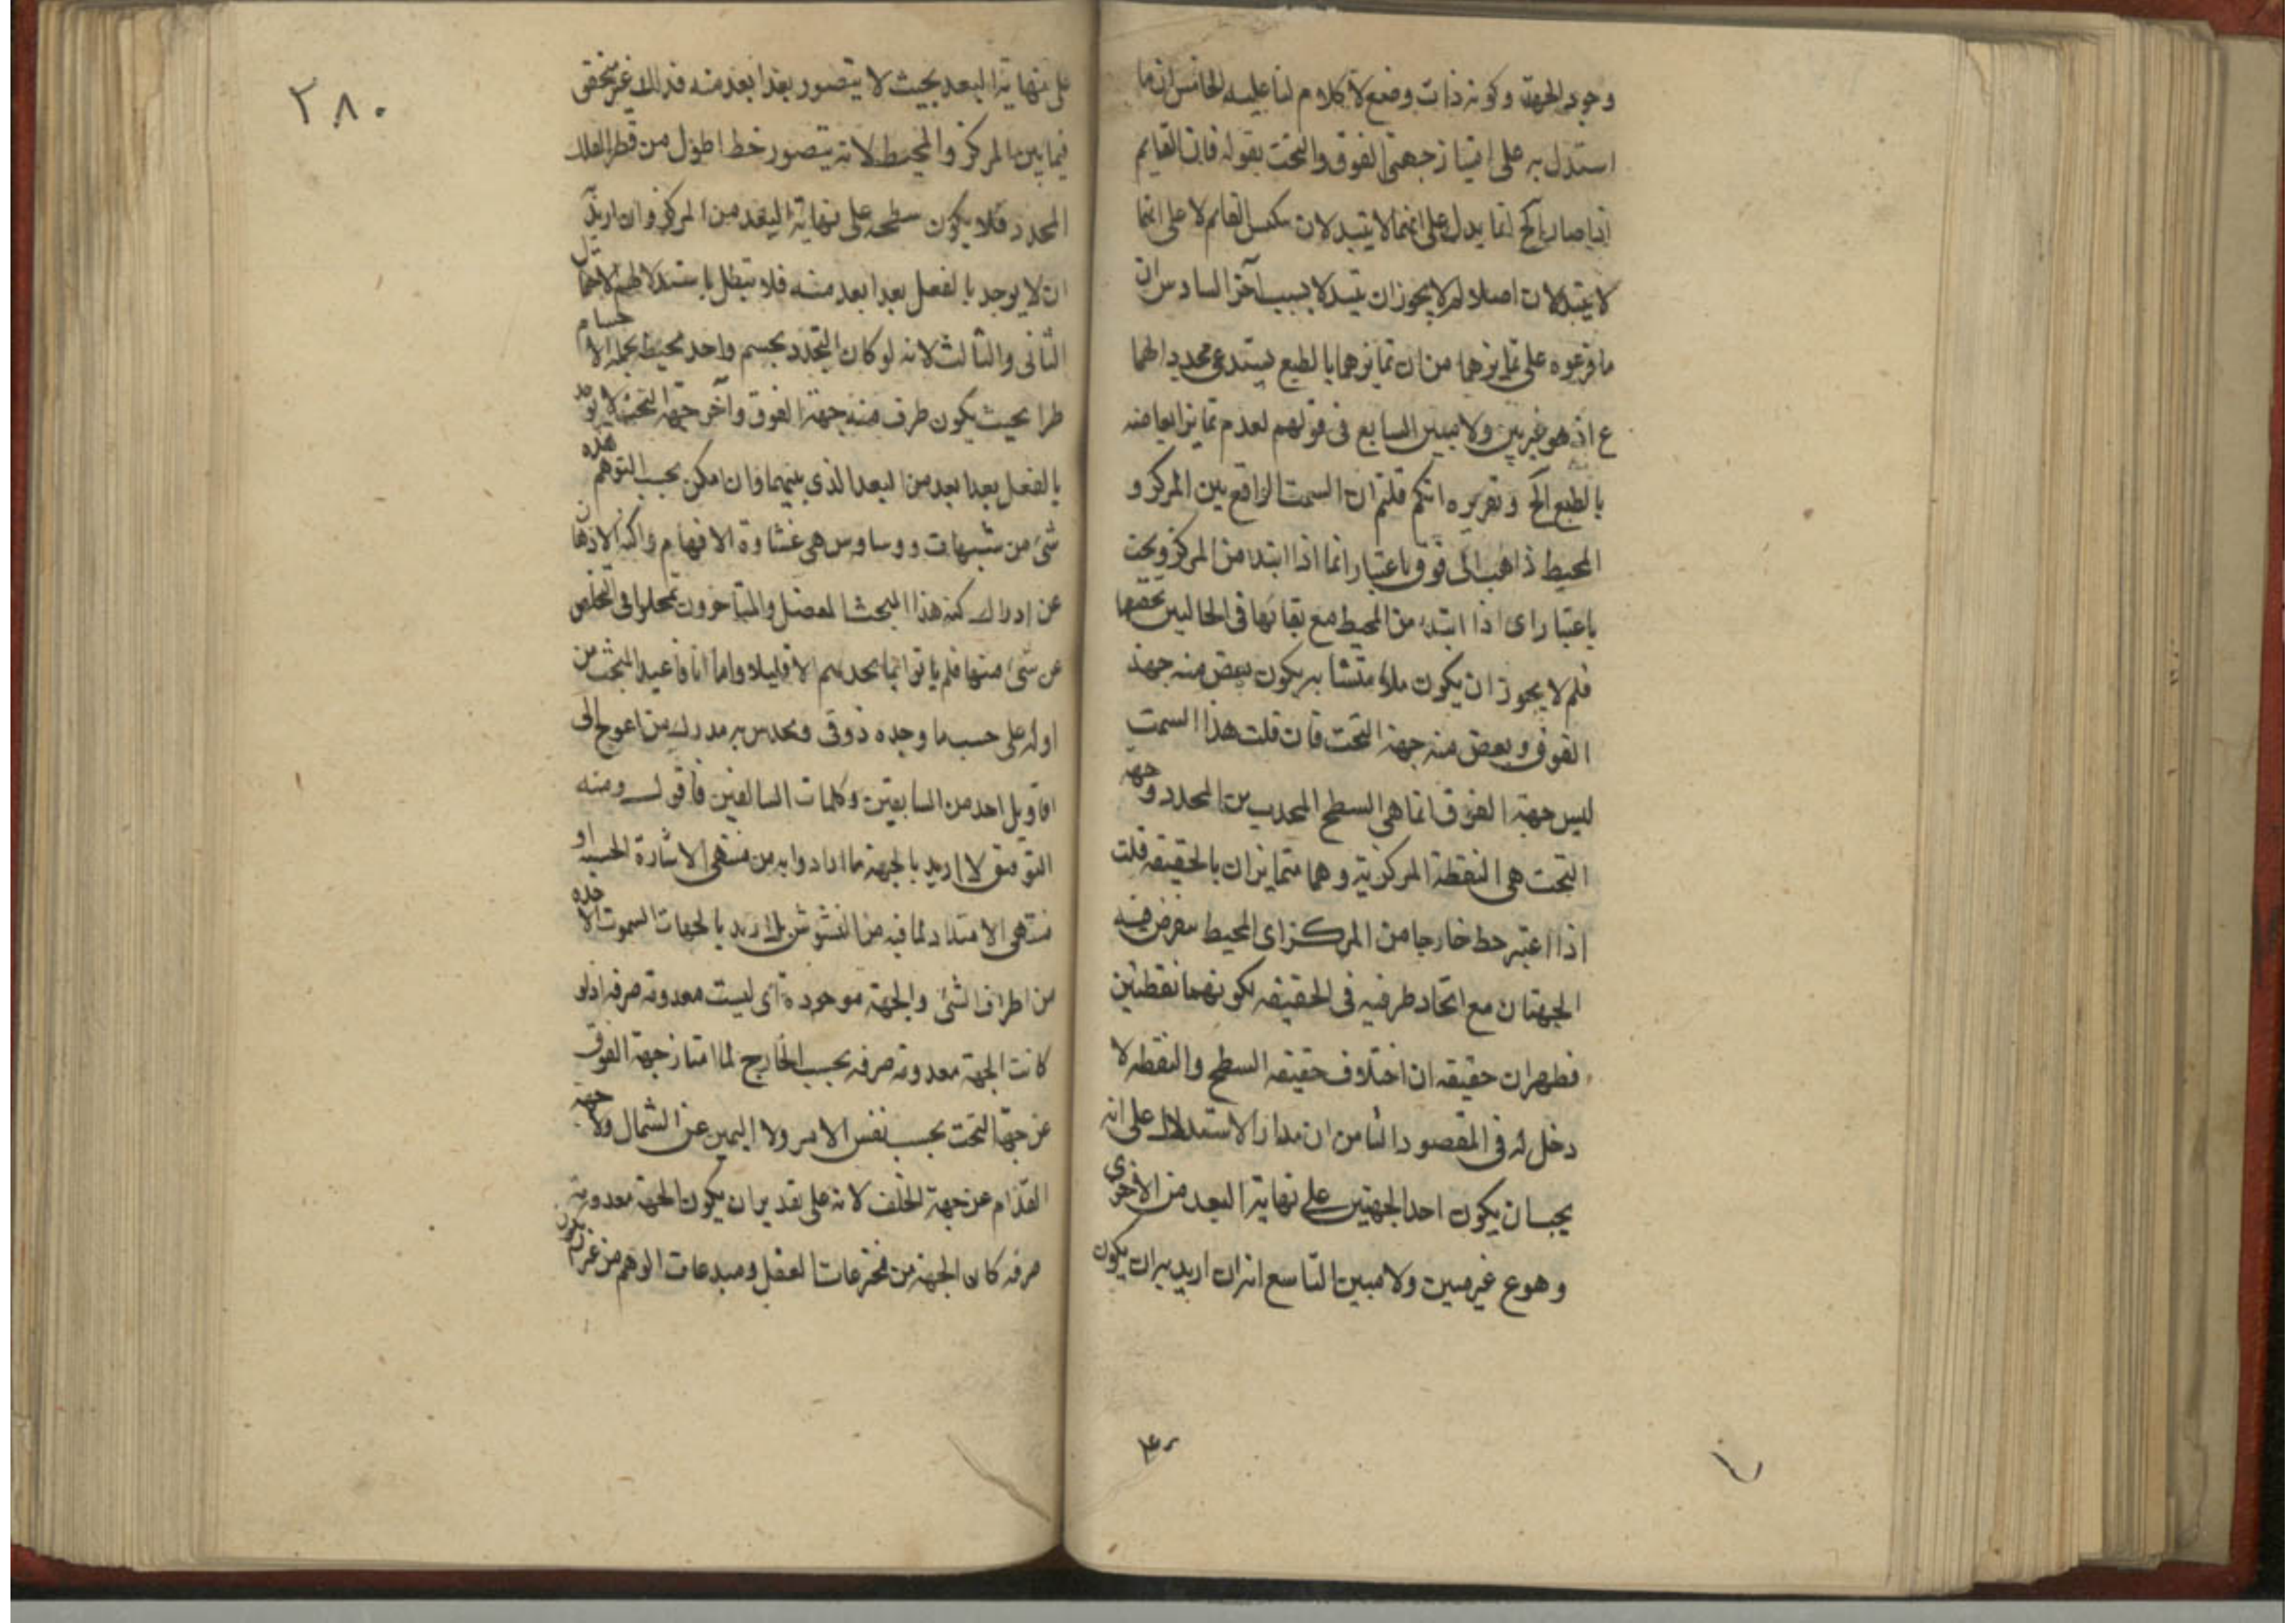 وجود الجهة وكونه ذات وضع لا كلام لنا عليه الخامس ان ما
استدل به على امتياز جهتى الفوق والتحت بقوله فان القايم
اذا صار الخ انما يدل على انهما لا يتبدلان بنكس القايم لا على انهما
لا يتبدلان اصلا لم لا يجوز ان يتبدلا بسبب آخر السادس ان
ما فرعوه على تمايزهما من ان تمايزهما بالطبع يستدعى محددا لهما
ع اذ هو غير بين ولا مبين السابع فى قولهم لعدم تمايز ابعاضه
بالطبع الخ وتقريره انكم قلتم ان السمت الواقع بين المركز و
المحيط ذاهب الى فوق باعتبار انما اذا ابتدء من المركز وتحت
باعتبار اى اذا ابتدء من المحيط مع بقائها فى الحالين بحقيقتها
فلم لا يجوز ان يكون ملاء متشابه يكون بعض منه جهة
الفوق وبعض منه جهة التحت فان قلت هذا السمت
ليس جهة الفوق انما هى السطح المحدب من المحدد وجهة
التحت هى النقطة المركزية وهما متمايزان بالحقيقة قلت
اذا اعتبر خط خارجا من المركز اى المحيط يفرض فيه
الجهتان مع اتحاد طرفيه فى الحقيقه لكونهما نقطتين
فظهر ان حقيقه ان اختلاف حقيقه السطح والنقطه لا
دخل له فى المقصود الثامن ان مدار الاستدلال على انه
يجب ان يكون احد الجهتين على نهاية البعد من الاخرى
وهو ع غير مبين ولا مبين التاسع انه ان اريد به ان يكون
٣٨٠
على نهاية البعد بحيث لا يتصور بعد ابعد منه فذالك غير متحقق
فيما بين المركز والمحيط لانه يتصور خط اطول من قطر الفلك
المحدد فلا يكون سطحه على نهاية البعد من المركز وان اريد
ان لا يوجد بالفعل بعد ابعد منه فلا يبطل باستدلالهم الاحتمال
الثانى والثالث لانه لو كان التحدد بجسم واحد محيط بجملة الاجسام
طرا بحيث يكون طرف منه جهة الفوق وآخر جهة التحت لا يوجد
بالفعل بعد ابعد من البعد الذى بينهما وان امكن بحسب التوهم هذه
شئ من شبهات ووساوس هى غشاوة الافهام واكنة الاذهان
عن ادراك كنه هذا المبحث المعضل والمتأخرون تمحلوا فى التخلص
عن شئ منها فلم ياتوا بما يجديهم الا قليلا واما انا فاعيد المبحث من
اوله على حسب ما وجده ذوقى وتحدس به مدركى من اعوج الى
اقاويل احد من السابقين وكلمات السالفين فاقول ومنه
التوفيق لا اريد بالجهة ما ارادوا به من منتهى الاشارة الحسيه او
منتهى الامتداد لما فيه من التشوش بل اريد بالجهات السموت الاخذه
من اطراف الشئ والجهة موجودة اى ليست معدومة صرفه اذ لو
كانت الجهة معدومة صرفه بحسب الخارج لما امتاز جهة الفوق
عن جهة التحت بحسب نفس الامر ولا اليمين عن الشمال ولا جهة
القدام عن جهة الخلف لانه على تقدير ان يكون الجهة معدومة
صرفه كان الجهة من مخترعات العقل ومبدعات الوهم من غير ان يكون